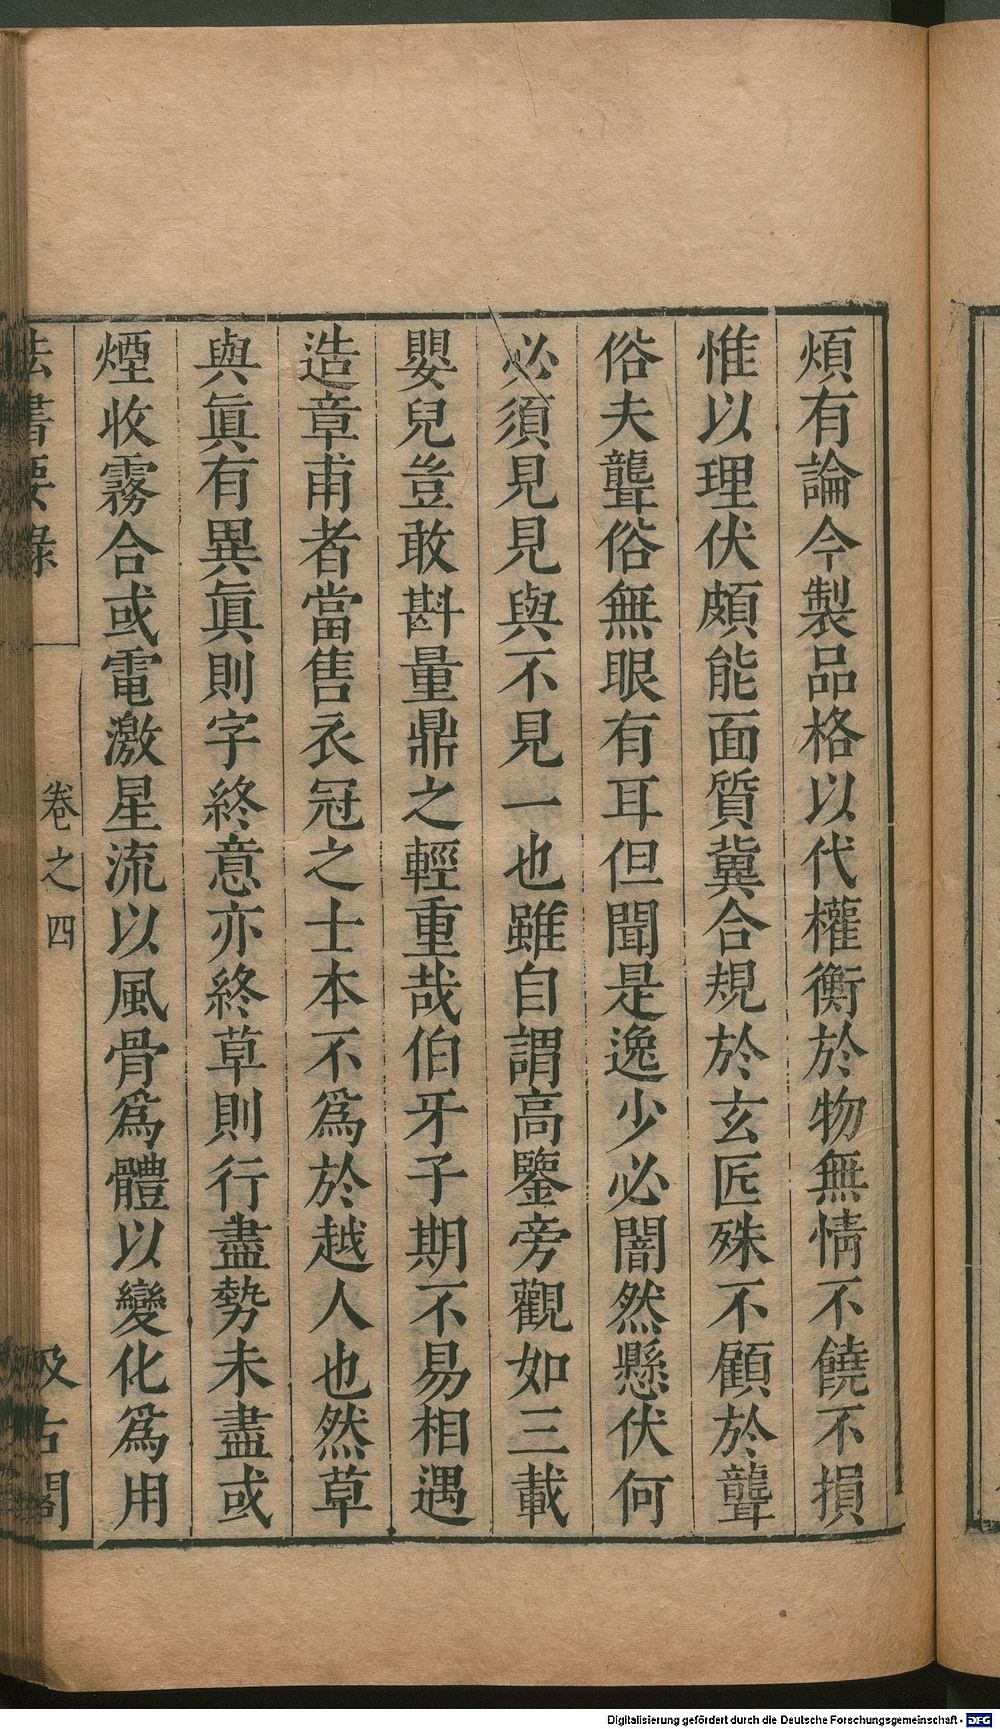 煩有論今製品格以代權衡於物無情不饒不損
惟以理伏頗能面質冀合規於玄匠殊不顧於聾
俗夫聾俗無眼有耳但聞是逸少必闇然懸伏何
必須見見與不見一也雖自謂高鑒旁觀如三載
嬰兒豈敢斟量鼎之輕重哉伯牙子期不易相遇
造章甫者當售衣冠之士本不爲於越人也然草
與眞有異眞則字終意亦終草則行盡勢未盡或
煙收霧合或電激星流以風骨爲體以變化爲用
法書要錄
卷之四
汲古閣
Digitalisierung gefördert durch die Deutsche Forschungsgemeinschaft - DFG